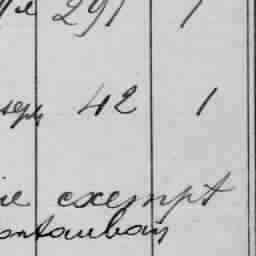 291 1
42 1
exempt
ontauban